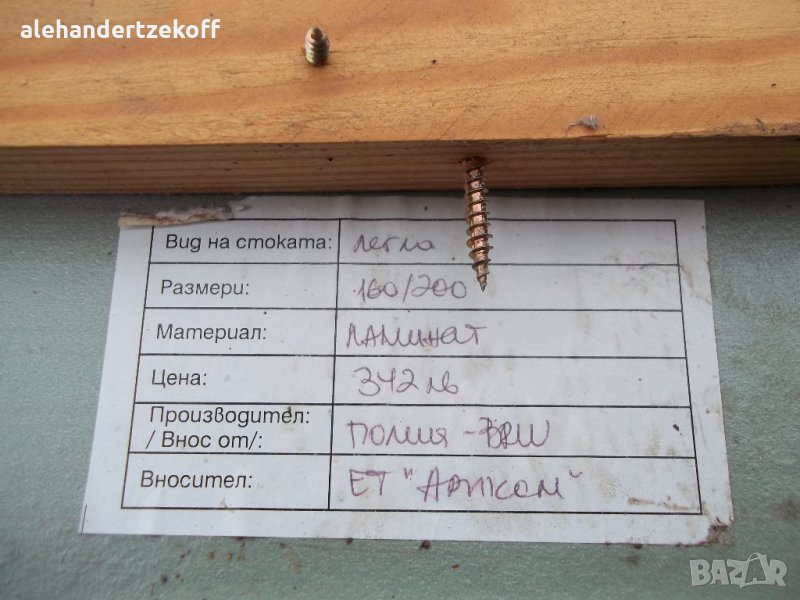 alehandertzekoff
Вид на стоката: легло
Размери: 160/200
Материал: ЛАМИНАТ
Цена: 342 лв
Производител:
/ Внос от/: ПОЛША - BRW
Вносител: ЕТ "
BAZAR